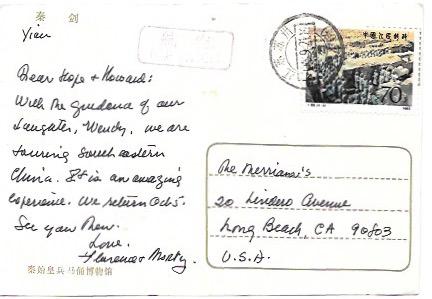 秦 剑
Xian
Dear Hope + Howard:
With the guidance of our
daughter, Wendy, we are
touring southeastern
China. It is an amazing
experience. We return Oct 5.
See you then.
Love,
Florence + Morty
秦始皇兵马俑博物馆
70分
The Merriams's
20 Lindero Avenue
Long Beach, CA 90803
U.S.A.